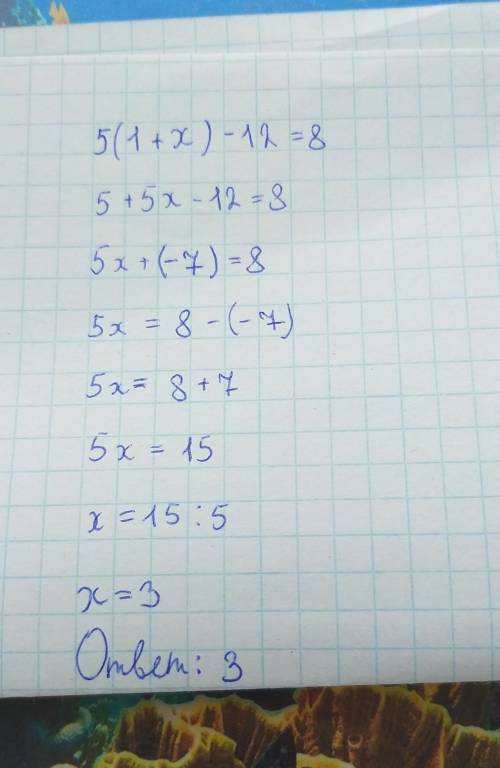 5(1+x)-12=8
5+5x-12=8
5x+(-7)=8
5x=8-(-7)
5x=8+7
5x=15
x=15:5
x=3
Ответ: 3